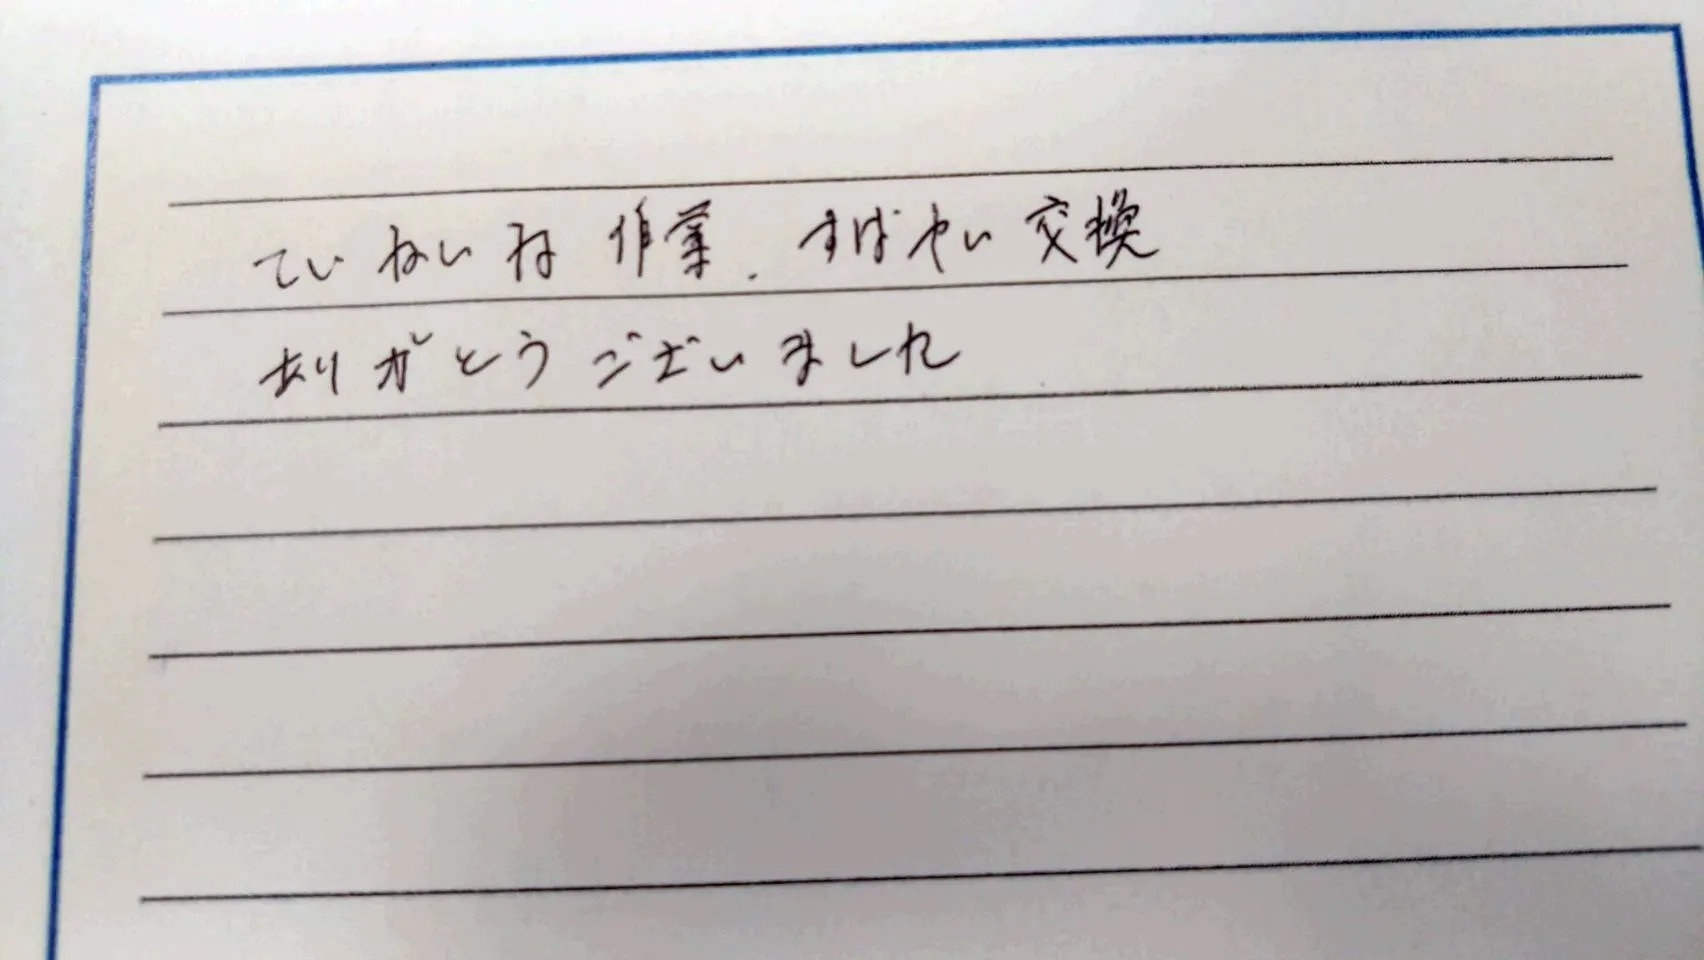 ていねいな作業、すばやい交換
ありがとうございました